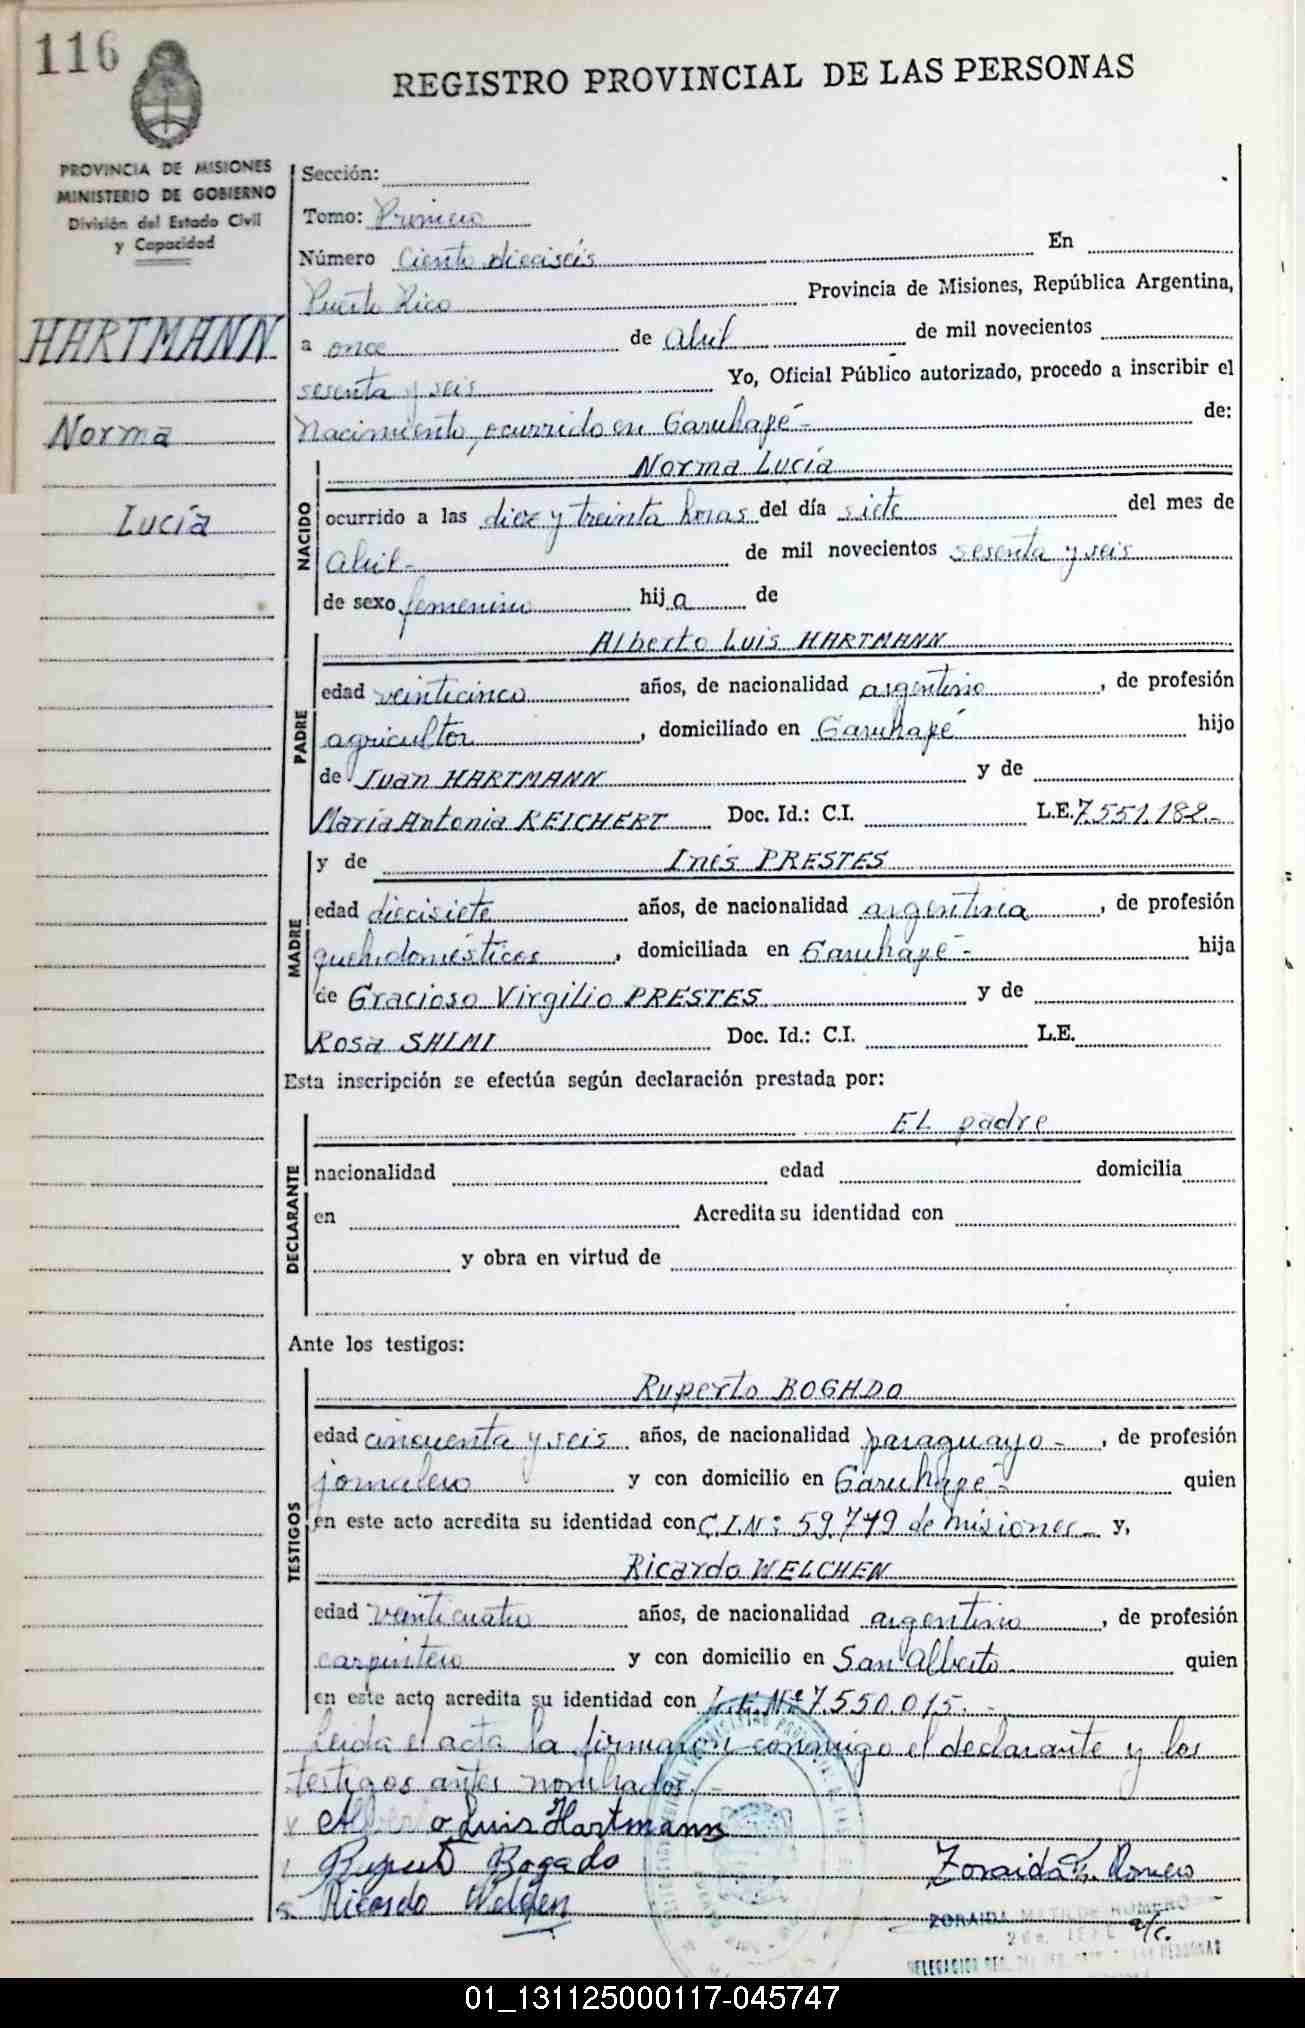 116
REGISTRO PROVINCIAL DE LAS PERSONAS
PROVINCIA DE MISIONES
MINISTERIO DE GOBIERNO
División del Estado Civil
y Capacidad
HARTMANN
Norma
Lucía
Sección:
Tomo: Primero
Número Ciento dieciséis En
Puerto Rico Provincia de Misiones, República Argentina,
a once de abril de mil novecientos
sesenta y seis Yo, Oficial Público autorizado, procedo a inscribir el
Nacimiento, ocurrido en Garuhapé- de:
NACIDO
Norma Lucía
ocurrido a las diez y treinta horas del día siete del mes de
abril- de mil novecientos sesenta y seis
de sexo femenino hija de
PADRE
Alberto Luis HARTMANN
edad veinticinco años, de nacionalidad argentino, de profesión
agricultor, domiciliado en Garuhapé hijo
de Juan HARTMANN y de
María Antonia REICHERT Doc. Id.: C.I. L.E. 7.551.182.-
MADRE
y de Inés PRESTES
edad diecisiete años, de nacionalidad argentina, de profesión
quehidomésticos, domiciliada en Garuhapé- hija
de Gracioso Virgilio PRESTES y de
Rosa SALMI Doc. Id.: C.I. L.E.
Esta inscripción se efectúa según declaración prestada por:
DECLARANTE
EL padre
nacionalidad edad domicilia
en Acredita su identidad con
y obra en virtud de
Ante los testigos:
TESTIGOS
Ruperto BOGADO
edad cincuenta y seis años, de nacionalidad paraguayo-, de profesión
jornalero y con domicilio en Garuhapé- quien
en este acto acredita su identidad con C.I.N: 59.749 de Misiones- y,
Ricardo WELCHEN
edad veinticuatro años, de nacionalidad argentino, de profesión
carpintero y con domicilio en San Alberto quien
en este acto acredita su identidad con L.E. Nº 7.550.015.-
Leida el acta la firmaron conmigo el declarante y los
testigos antes nombrados.-
Alberto Luis Hartmann
Ruperto Bogado
Zoraida M. Romero
Ricardo Welchen
ZORAIDA MATILDE ROMERO
a/c.
01_131125000117-045747